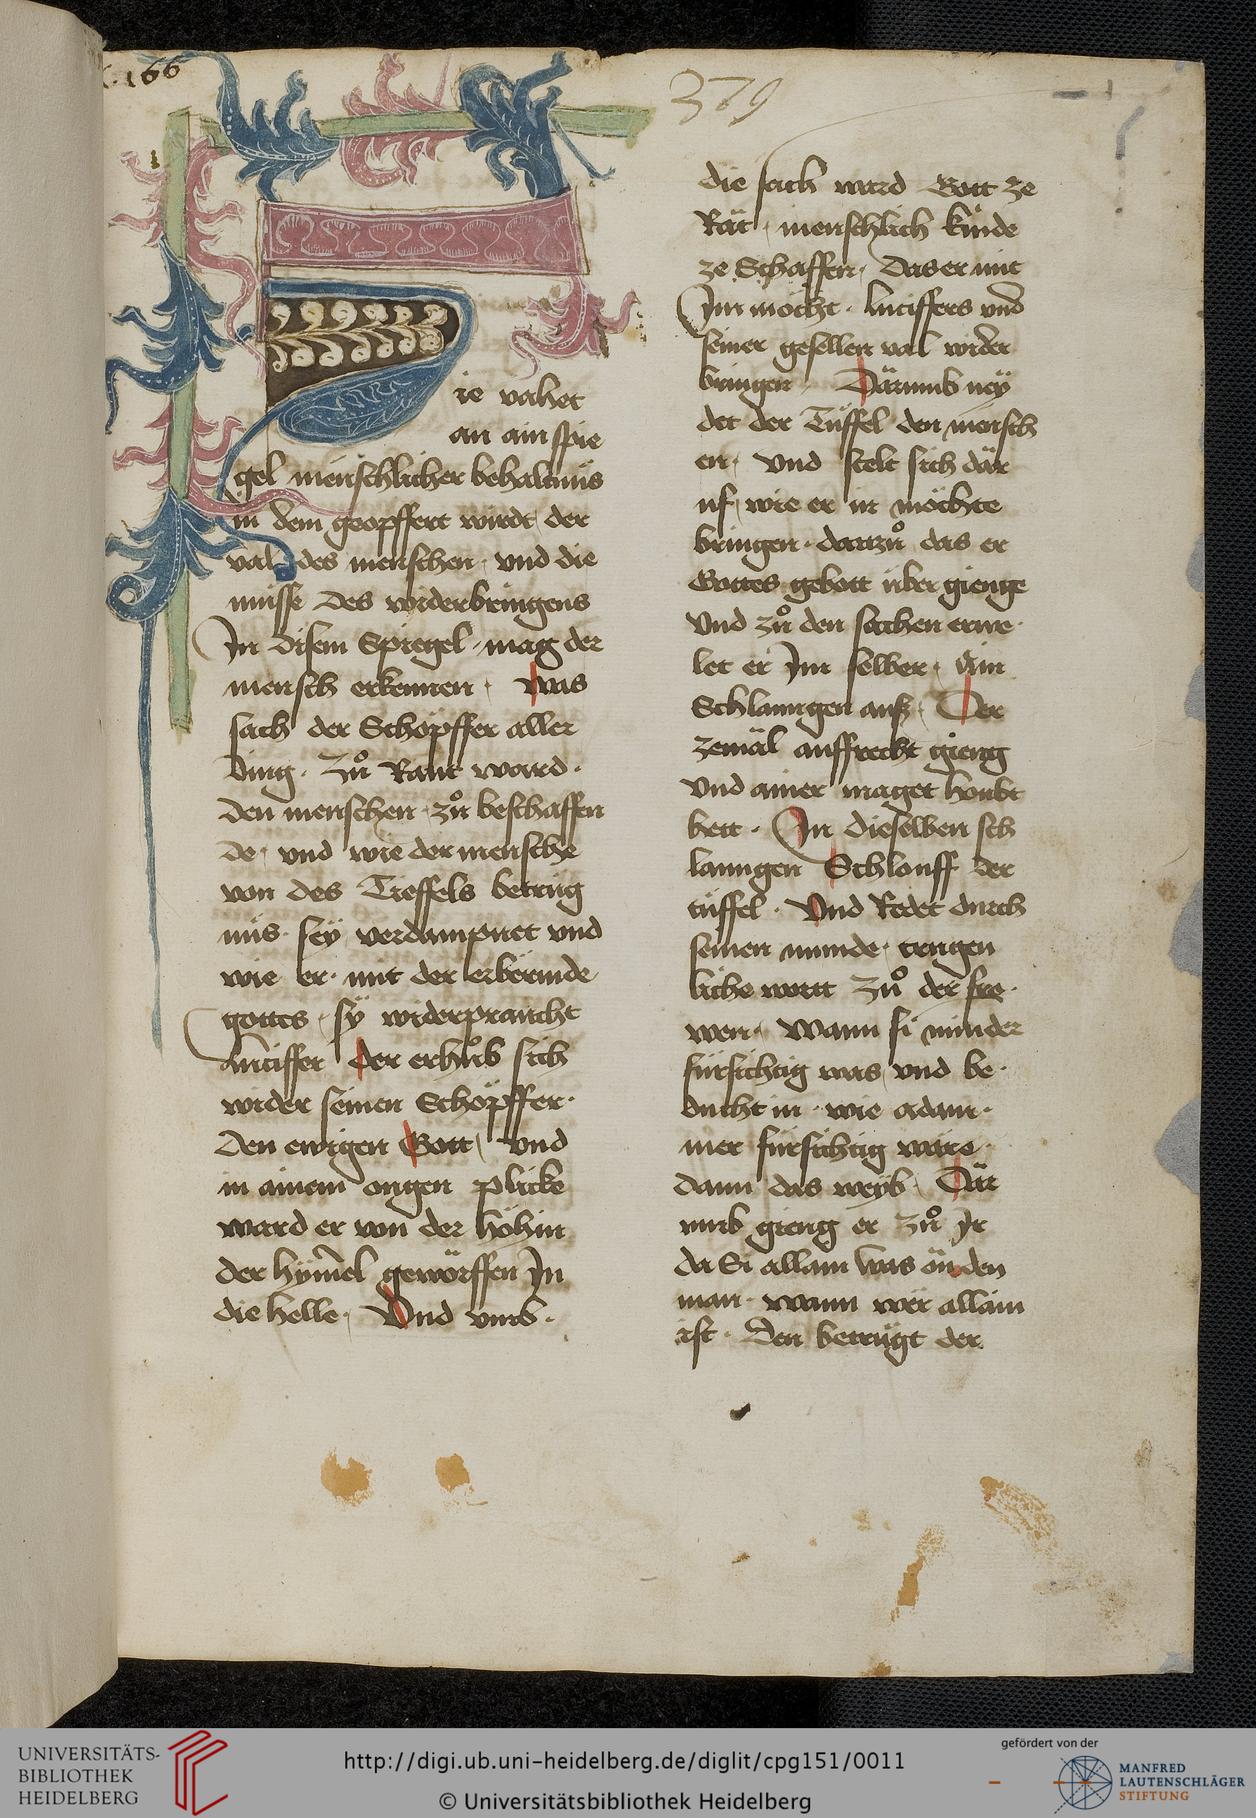 C. 166
379
1
Hie vahet
an ain spie
gel menschlicher behaltnüs
in dem geopffert wirdt der
val des menschen und die
müsse des widerbringens
In disem Spiegel mag der
mensch erkennen Was
sach der Schöpffer aller
ding. zů Raut ward.
den menschen zů beschaffen
de und wie der mensche
von des Tieffels betrüg
nüs sey verdampnet und
wie er mit der erbermde
gottes sy widerpraucht
Luciffer der erhůb sich
wider seinen Schöpffer.
den ewigen Gott und
in ainem ougen plicke
ward er von der höhin
der hymel geworffen In
die helle. Und umb.
die sach ward Gott ze
Rät menschlich künde
ze Schaffen, das er mit
Im möcht. luciffers und
seiner gesellen val wider
bringen Därumb ney
det der Tüffel den mensch
en, und stelt sich där
uf wie er in möchte
bringen. dartzů das er
Gottes gebott über gienge
Und zů den sachen erwe.
let er Im selber. Ain
Schlanngen auß. Der
zemäl auffrecht gieng
Und ainer maget houbt
hett. In dieselben sch
lanngen Schlouff der
tüffel. Und Redet durch
seinen munde trugen
liche wort zů der fro.
wen. Wann si minder
fürsichtig was und be.
ducht in wie adam.
mer fürsichtig wäre.
dann das weyb. Där
umb gieng er zů Ir
da Si allain was ön den
man. wann wer allain
ist. Den betrügt der
UNIVERSITÄTS-
BIBLIOTHEK
HEIDELBERG
http://digi.ub.uni-heidelberg.de/diglit/cpg151/0011
© Universitätsbibliothek Heidelberg
gefördert von der
MANFRED
LAUTENSCHLÄGER
STIFTUNG